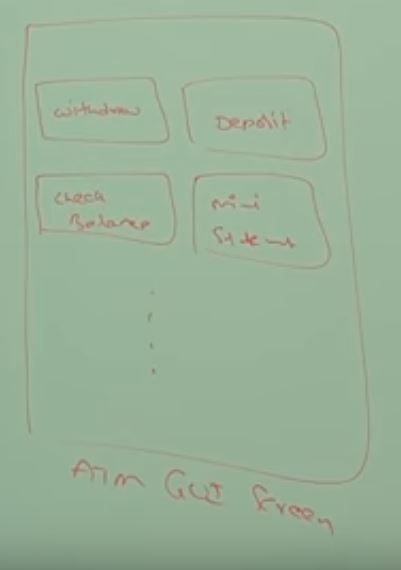 withdraw
Deposit
check
Balance
mini
Statement
ATM GUI Screen